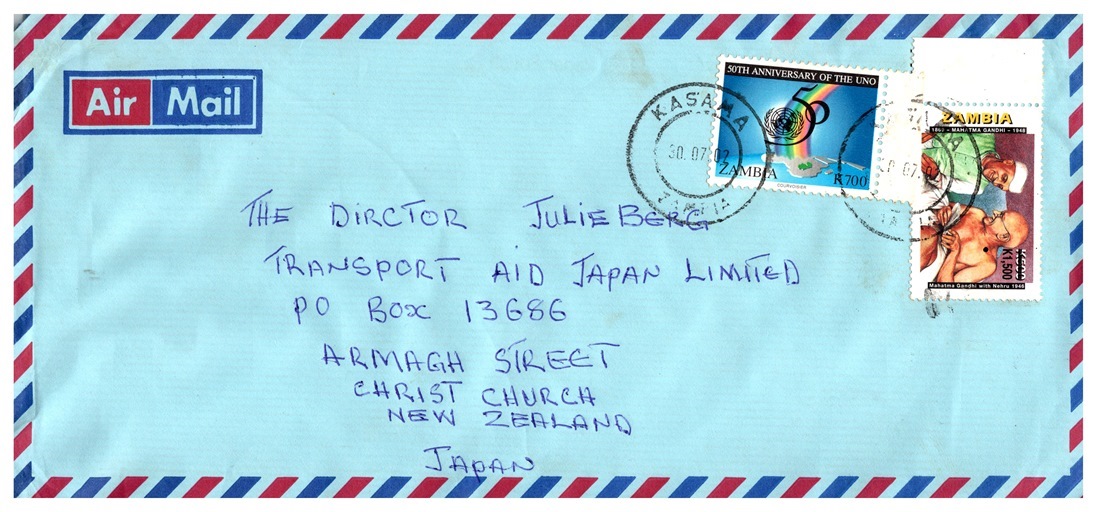 Air Mail
50TH ANNIVERSARY OF THE UNO
50
ZAMBIA K700
COURVOISIER
KASAMA
30.07.02
ZAMBIA
ZAMBIA
1869 - MAHATMA GANDHI - 1948
K1,500
Mahatma Gandhi with Nehru 1946
THE DIRCTOR JULIE BERG
TRANSPORT AID JAPAN LIMITED
PO BOX 13686
ARMAGH STREET
CHRIST CHURCH
NEW ZEALAND
JAPAN